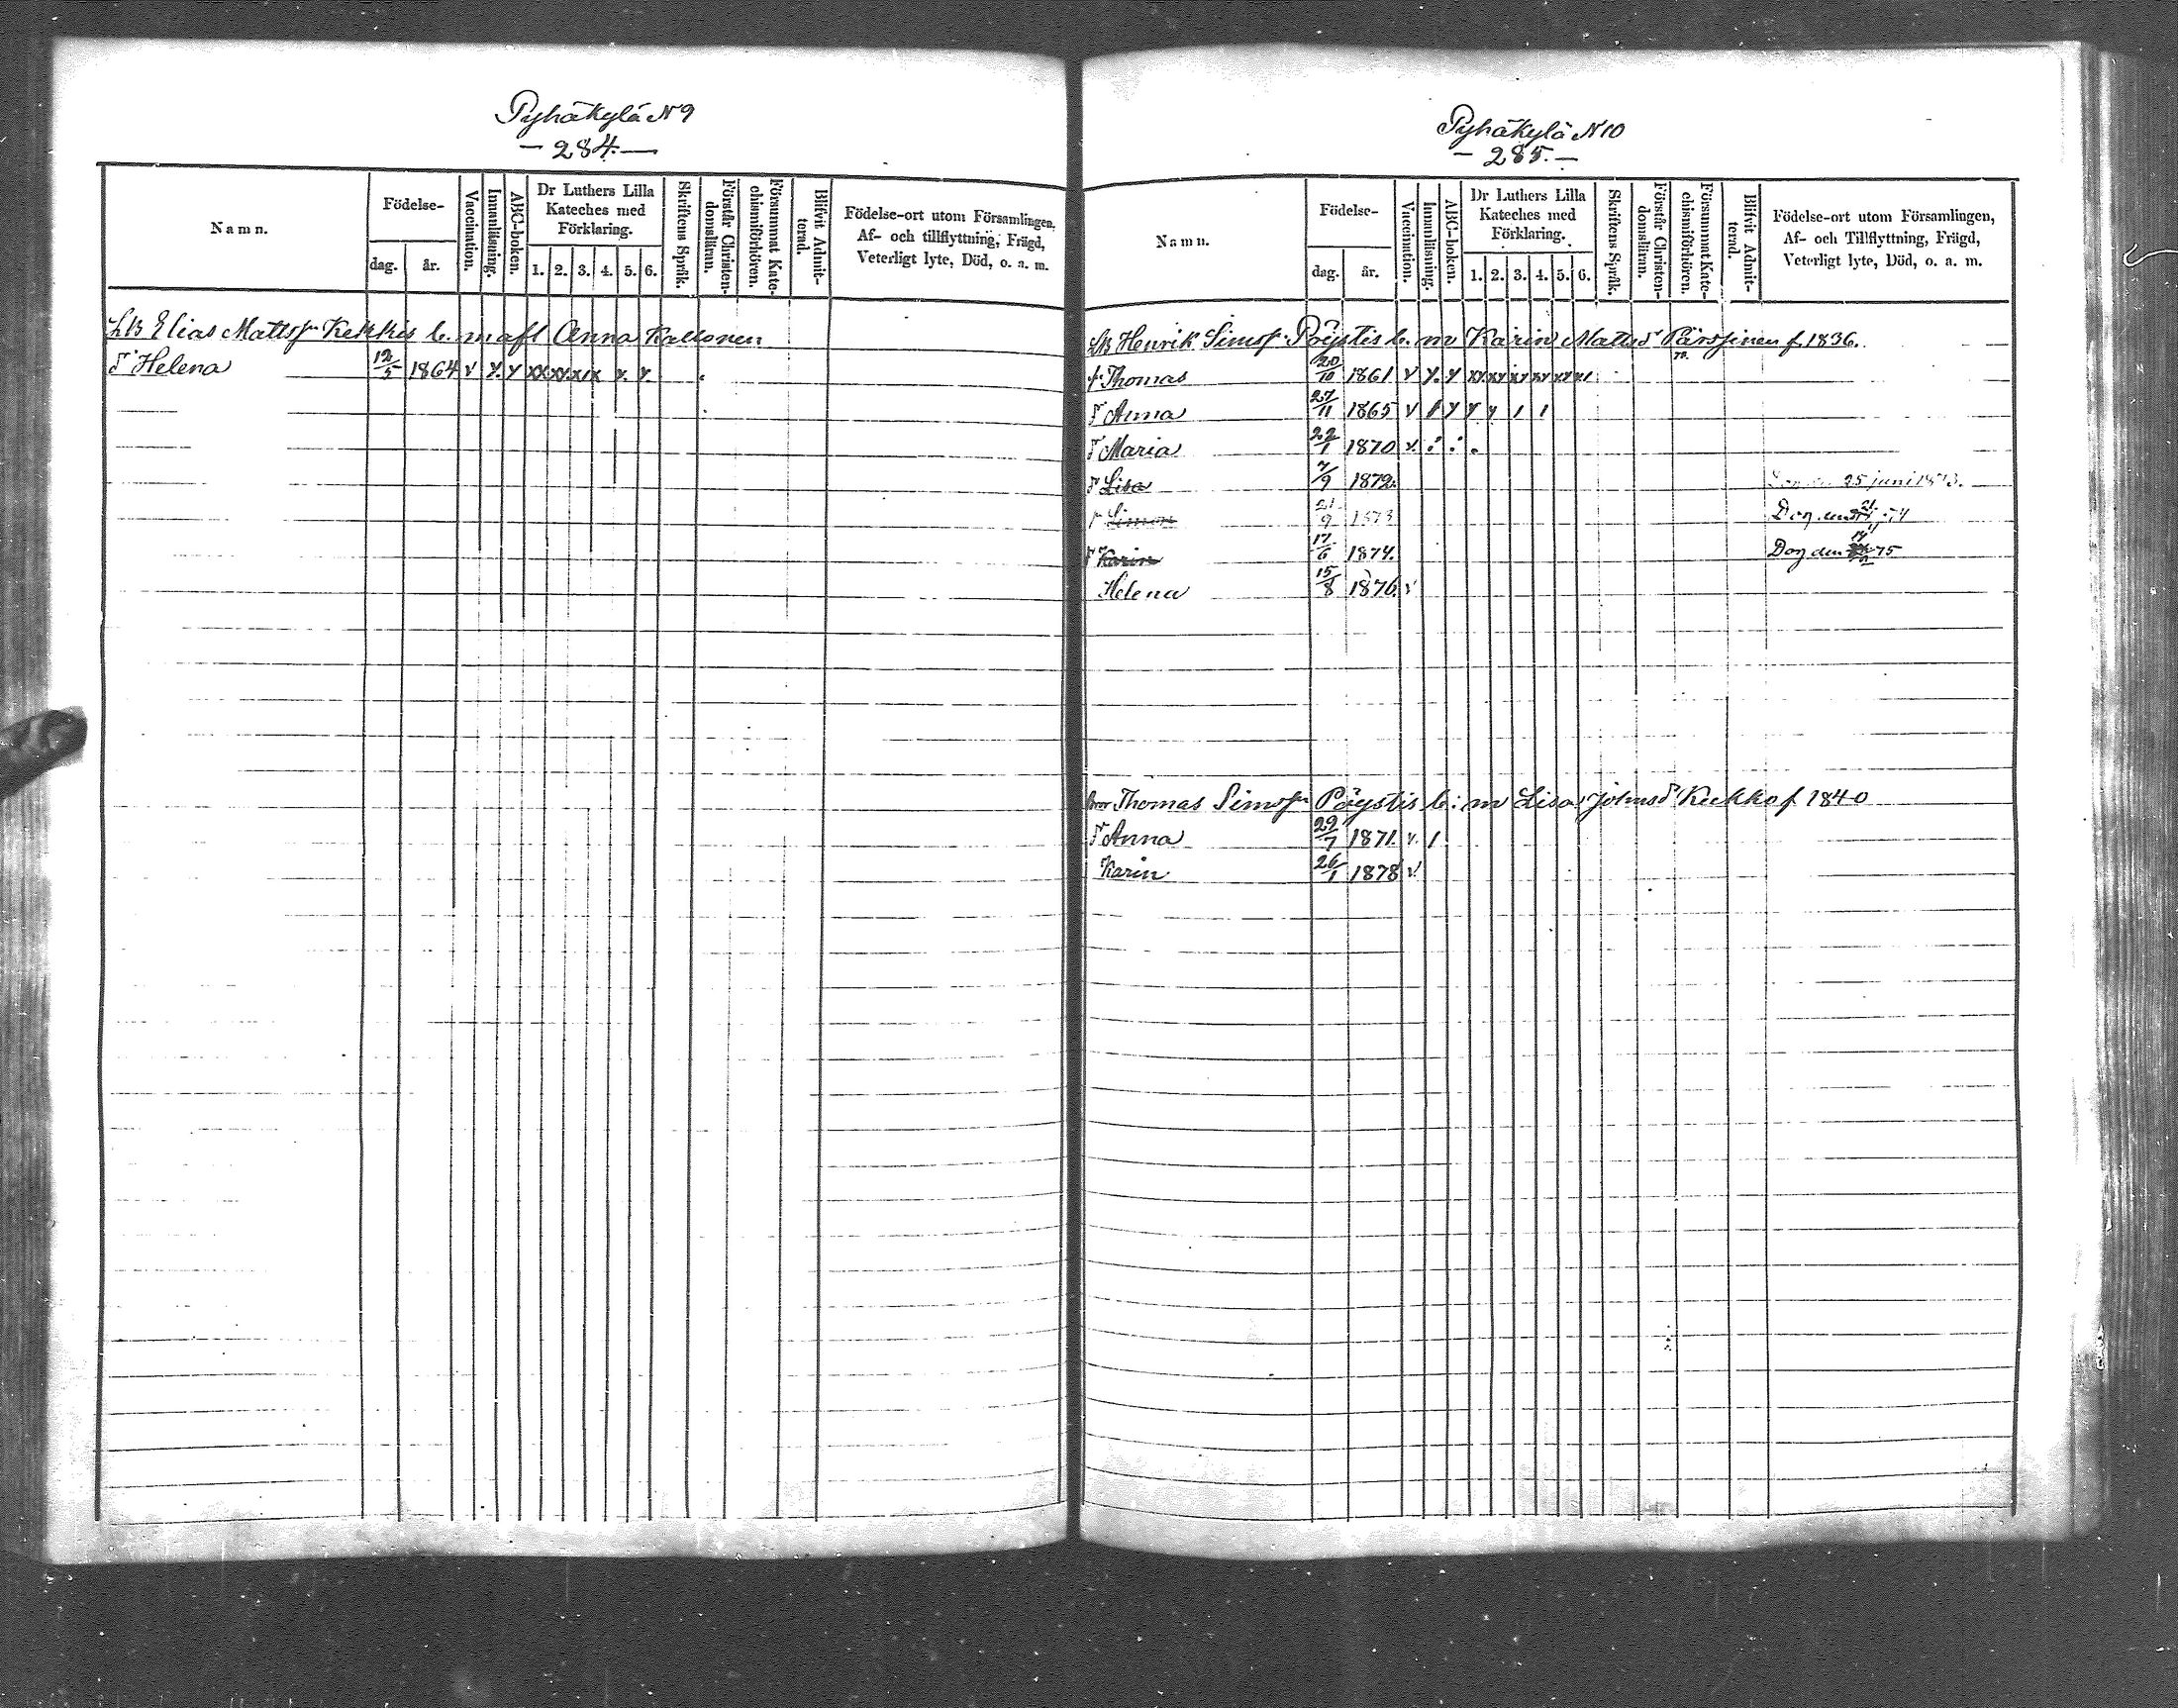 Pyhäkylä N 9
— 284. —
Namn.
Födelse-
dag.
år.
Vaccination.
Innanläsning.
ABC-boken.
Dr Luthers Lilla Kateches med Förklaring.
1. 2. 3. 4. 5. 6.
Skriftens Språk.
Förstår Christendomsläran.
Försummat Katechismiförhören.
Blifvit Admitterad.
Födelse-ort utom Församlingen,
Af- och tillflyttning, Frägd,
Veterligt lyte, Död, o. a. m.
Elias Mattss. Kekkis b. m afl Anna Kallonen
d Helena 12/5 1864
Pyhäkylä N 10
— 285. —
Namn.
Födelse-
dag.
år.
Vaccination.
Innanläsning.
ABC-boken.
Dr Luthers Lilla Kateches med Förklaring.
1. 2. 3. 4. 5. 6.
Skriftens Språk.
Förstår Christendomsläran.
Försummat Katechismiförhören.
Blifvit Admitterad.
Födelse-ort utom Församlingen,
Af- och Tillflyttning, Frägd,
Veterligt lyte, Död, o. a. m.
Henrik Simoss. Pöystis b. m Karin Mattsd Pärssinen f. 1836.
Thomas 20/10 1861
d Anna 27/11 1865
d Maria 22/1 1870
d Lisa 7/9 1872. 25 juni 1873.
Simon 21/9 1873 Dog den
d Karin 17/6 1874. Dog den 75
Helena 15/8 1876.
Bror Thomas Simoss Pöystis b: m Lisa Johnsd Kukko f. 1840
d Anna 29/7 1871.
Karin 26/1 1878